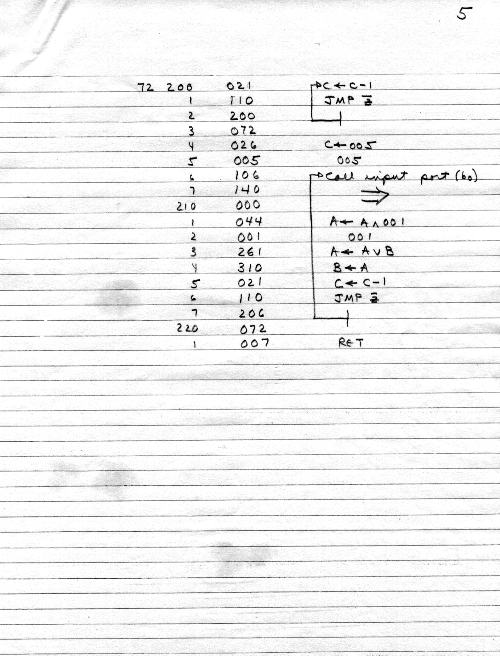 5
72 200 021 C ← C-1
1 110 JMP z̄
2 200
3 072
4 026 C←005
5 005 005
6 106 Call input port (bo)
7 140 ⇒
210 000
1 044 A← A∧001
2 001 001
3 261 A← A∨B
4 310 B←A
5 021 C← C-1
6 110 JMP z̄
7 206
220 072
1 007 RET